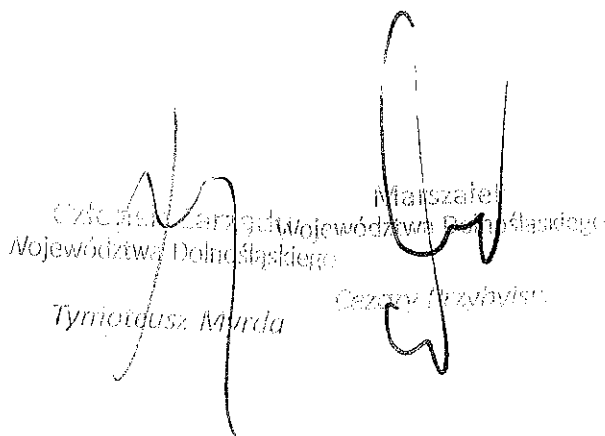 Członek Zarządu
Województwa Dolnośląskiego
Tymoteusz Myrda
Marszałek
Województwa Dolnośląskiego
Cezary Przybylski